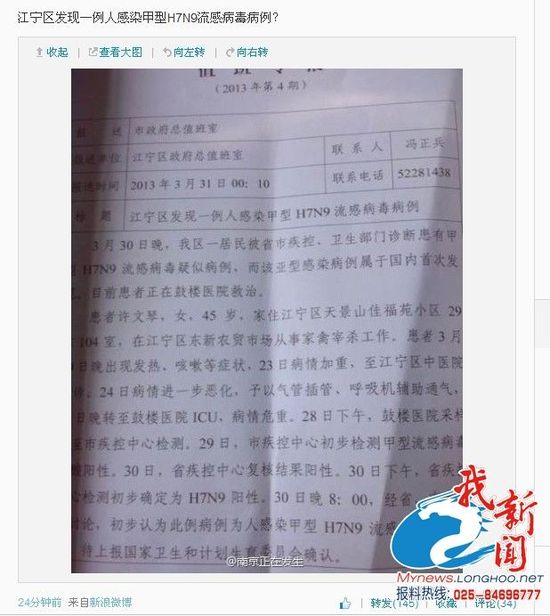 江宁区发现一例人感染甲型H7N9流感病毒病例?
收起 | 查看大图 向左转 向右转
(2013年第4期)
送 市政府总值班室
报送单位 江宁区政府总值班室 联系人 冯正兵
报送时间 2013年3月31日00:10 联系电话 52281438
标题 江宁区发现一例人感染甲型H7N9流感病毒病例
3月30日晚,我区一居民被省市疾控、卫生部门诊断患有甲
H7N9流感病毒疑似病例,而该亚型感染病例属于国内首次发
,目前患者正在鼓楼医院救治。
患者许文琴,女,45岁,家住江宁区天景山佳福苑小区29
104室,在江宁区东新农贸市场从事家禽宰杀工作。患者3月
日晚出现发热、咳嗽等症状,23日病情加重,至江宁区中医院
。24日病情进一步恶化,予以气管插管、呼吸机辅助通气,
日晚转至鼓楼医院ICU,病情危重。28日下午,鼓楼医院采样
至市疾控中心检测。29日,市疾控中心初步检测甲型流感病毒
酸阳性。30日,省疾控中心复核结果阳性。30日下午,省疾
心检测初步确定为H7N9阳性。30日晚8:00,经省
讨论,初步认为此例病例为人感染甲型H7N9流感
待上报国家卫生和计划生育委员会确认。
@南京正在发生
我新闻
Mynews.LONGHOO.NET
报料热线:025-84696777
24分钟前 来自新浪微博 | 转发(145) | 收藏 | 评论(34)